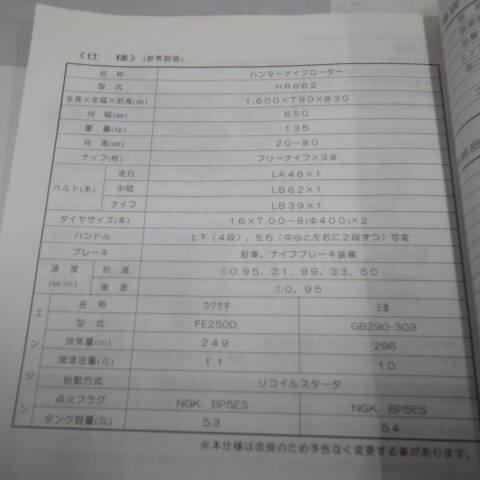 《仕 様》(参考数値)
名 称 ハンマーナイフローター
型 式 HR662
全長×全幅×全高(mm) 1,600×790×830
刈 幅(mm) 650
重 量(kg) 135
刈 高(mm) 20~80
ナイフ(枚) フリーナイフ×38
ベルト(本) 走行 LA46×1
中間 LB62×1
ナイフ LB39×1
タイヤサイズ(本) 16×7.00-8(Φ400)×2
ハンドル 上下(4段)、左右(中心と左右に2段ずつ)可変
ブレーキ 駐車、ナイフブレーキ装備
速 度 前 進 ①0.95, ②1,99, ③3,50
(km/h) 後 進 ①0,95
エンジン 名 称 カワサキ 三菱
型 式 FE250D GB290-303
排気量(cc) 249 296
潤滑油量(㍑) 1.1 1.0
始動方式 リコイルスタータ
点火プラグ NGK BP5ES NGK BP5ES
タンク容量(㍑) 5.3 5.4
※本仕様は改良のため予告なく変更する事があります。